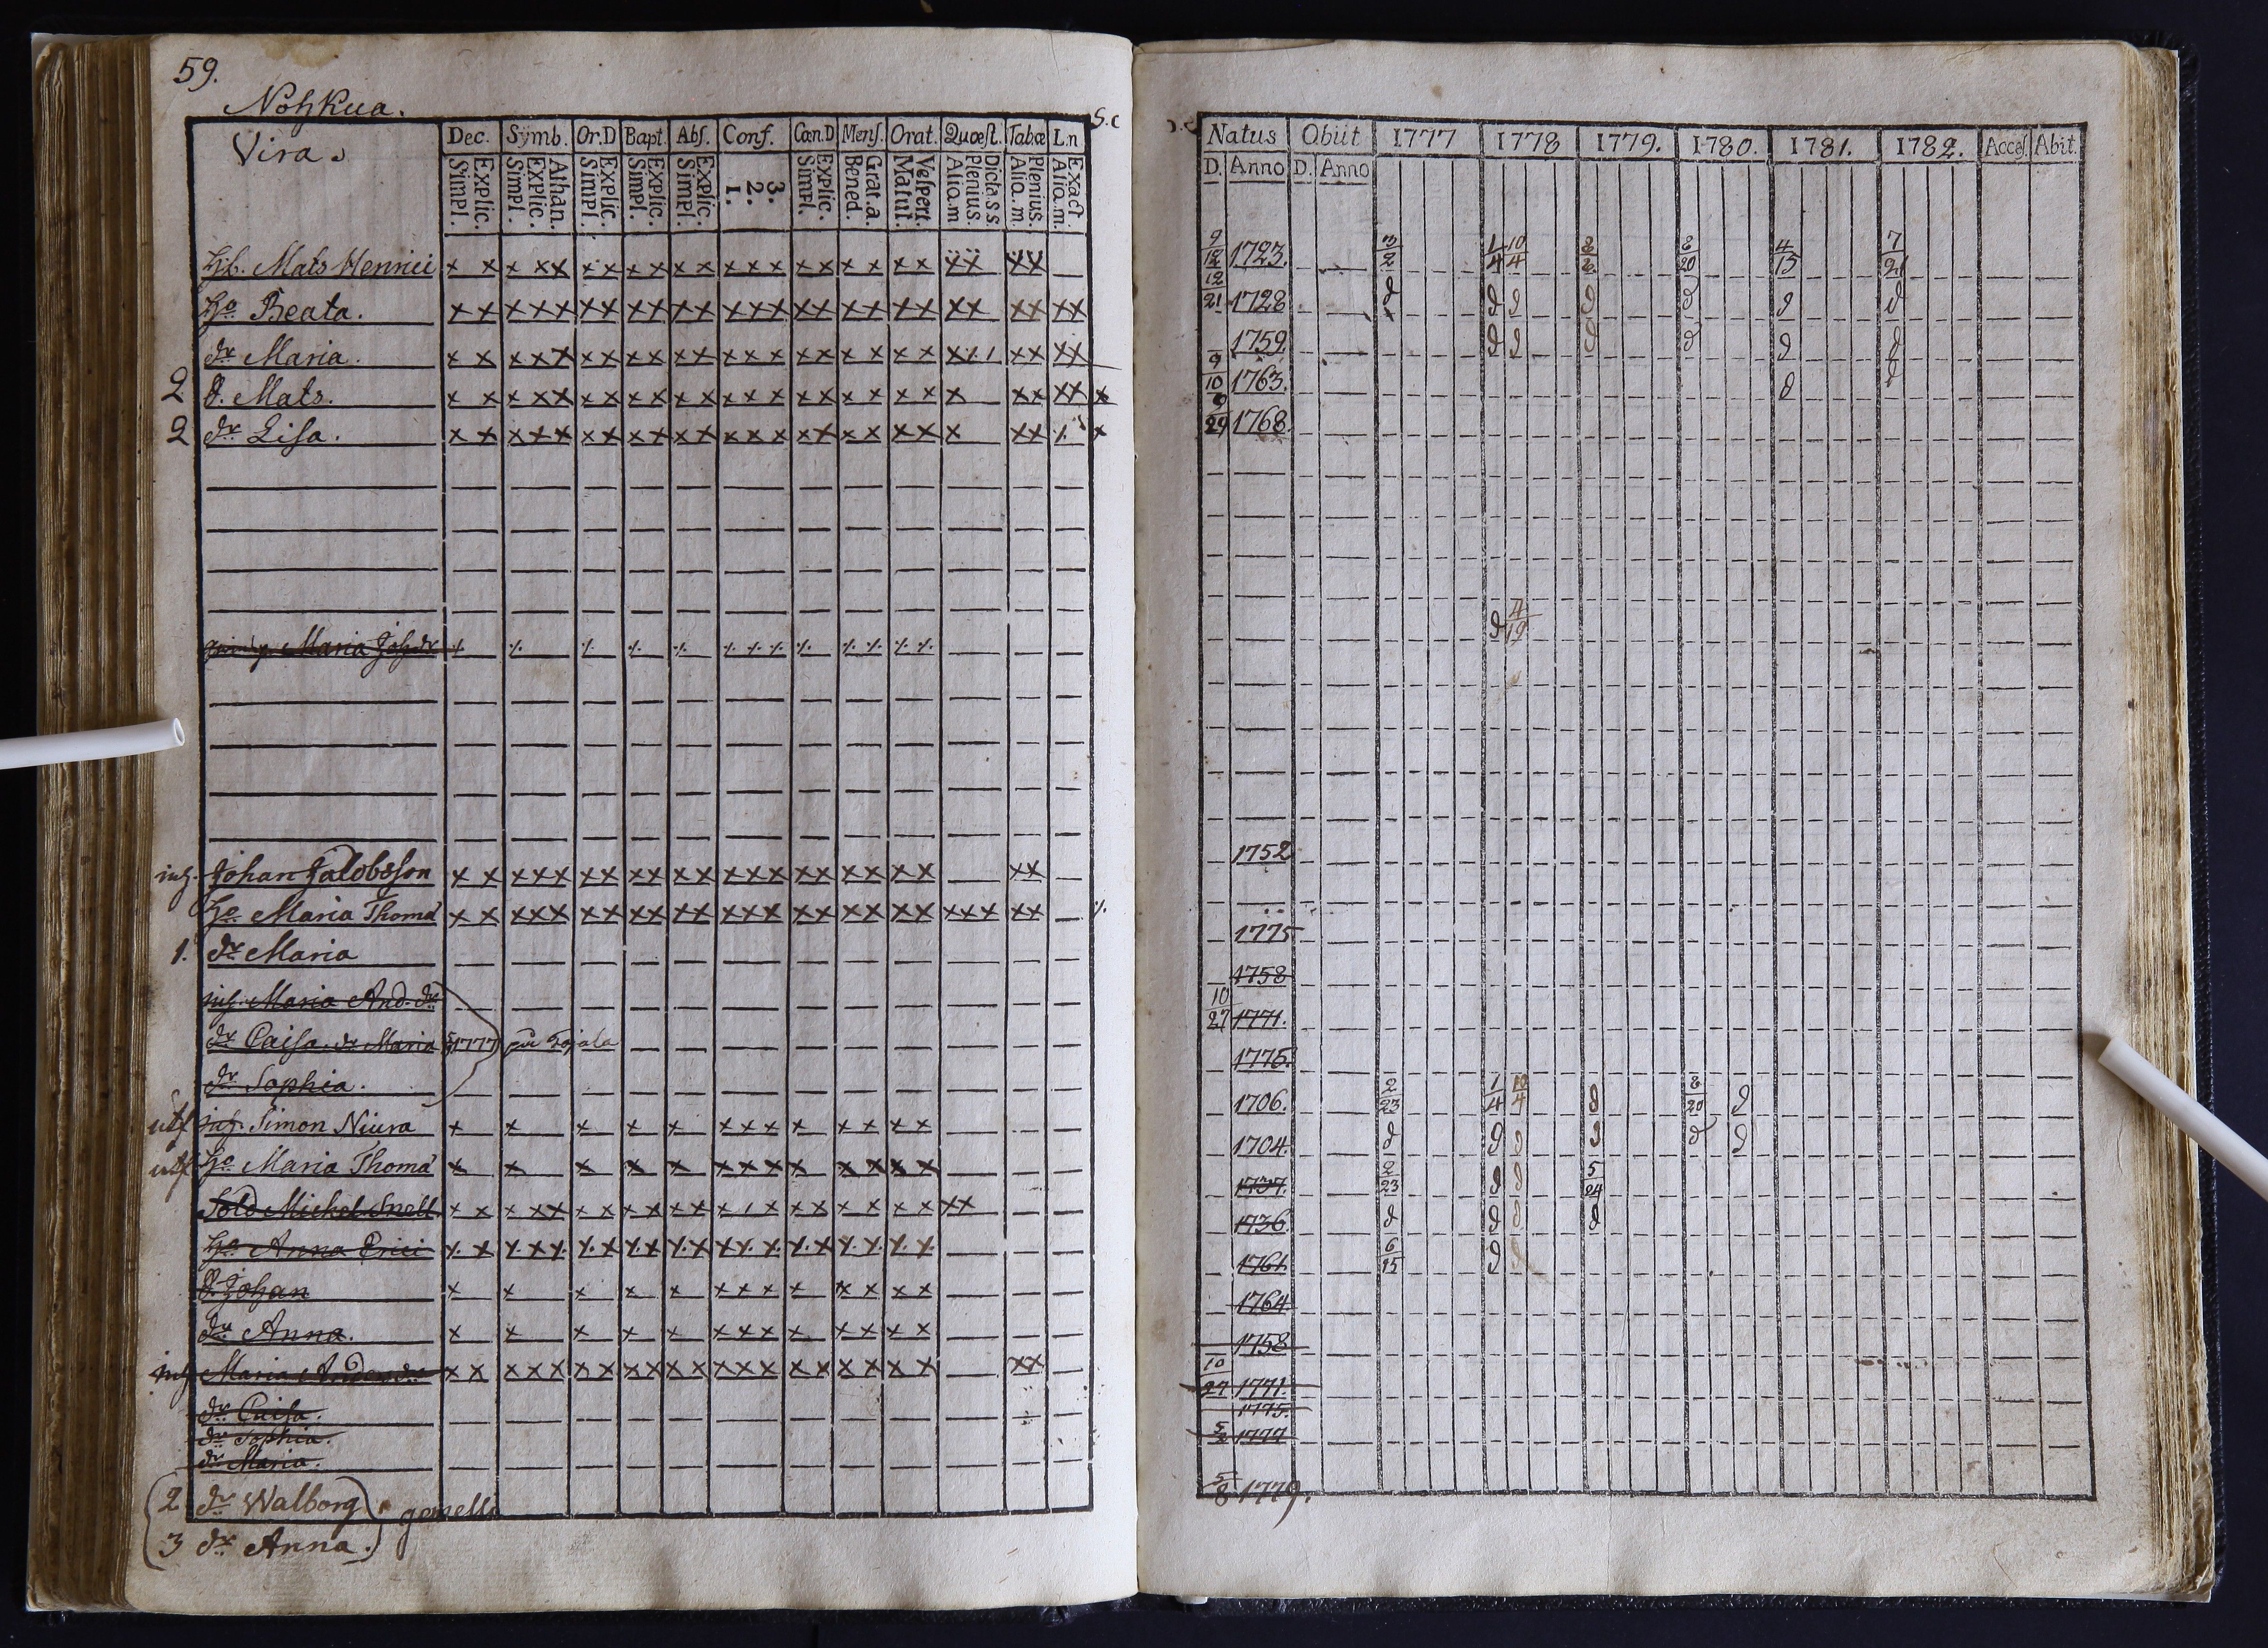 59.
Nohkua.
Vira.
Dec. Symb. Or.D Bapt. Abſ. Conf. Cœn.D Menſ. Orat. Quœſt. Tabœ L.n
Explic. Simpl. Athan. Explic. Simpl. Explic. Simpl. Explic. Simpl. Explic. Simpl. 3. 2. 1. Explic. Simpl. Grat.a. Bened. Veſpert. Matut. Dicta.s.s. Plenius. Aliq.m Plenius. Aliq.m. Exact. Aliq.m.
S.c
Hb. Mats Henrici x x x x x x x x x x x x x x x x x x x x x x x x x x
Ho Beata. x x x x x x x x x x x x x x x x x x x x x x x x x x x
dr Maria. x x x x x x x x x x x x x x x x x x x x x x x x x
2 S. Mats. x x x x x x x x x x x x x x x x x x x x x x x x x x x
2 dr Liſa. x x x x x x x x x x x x x x x x x x x x x x x x x
Maria Joh.dr
inh. Johan Jacobsſon x x x x x x x x x x x x x x x x x x x x x x
Ho Maria Thomæ x x x x x x x x x x x x x x x x x x x x x x x x x
1. dr Maria
inh. Maria And. dr
dr Caiſa. dr Maria 1777 på Tojala
dr Sophia.
utf inh. Simon Niura x x x x x x x x x x x x x
utf Ho Maria Thomæ x x x x x x x x x x x x x
Sold Michel Snell.
Ho Anna Erici
S. Johan x x x x x x x x x x x x x
dr Anna. x x x x x x x x x x x x x
inh Maria Anders.dr x x x x x x x x x x x x x x x x x x x x x x
dr Caiſa.
dr Sophia.
dr Maria.
2 dr Walborg
gemelli
3 dr Anna.
Natus Obiit 1777 1778 1779. 1780. 1781. 1782. Acceſ. Abit.
D. Anno D. Anno
9/12 1723. 3/2 1/4 10/4 8/20 4/15 7/21
12/21 1728
1759
9/10 1763.
9/29 1768.
4/19
1752
1775
1758
10/27 1771.
1775.
1706. 2/23 1/4 10/4 8/20
1704.
1737. 2/23 5/24
1736.
1761 6/15
1764
1758
10/27 1771.
1775.
1777
5/8 1779.